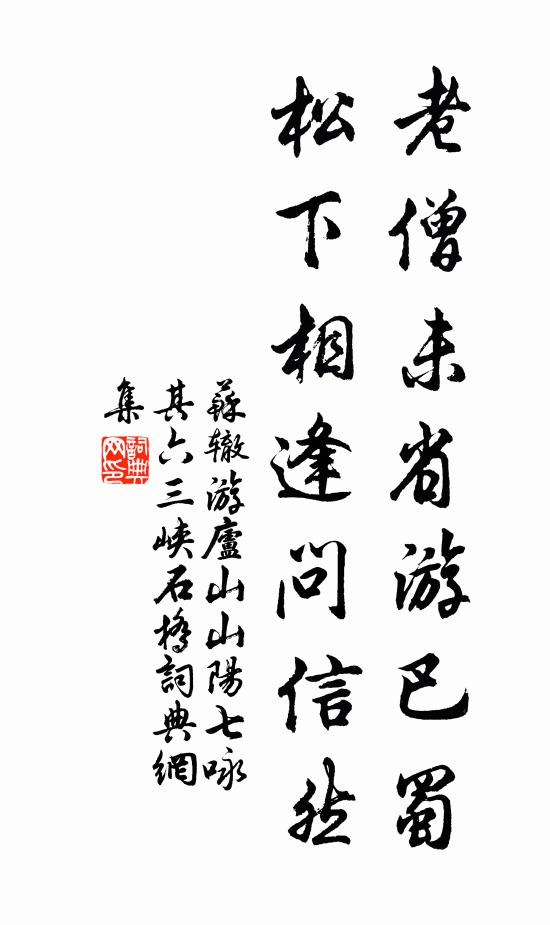 老僧未省游巴蜀
松下相逢问信然
蘇辙游廬山山陽七咏
其六三峡石橋詞典網
集
詞典
网印